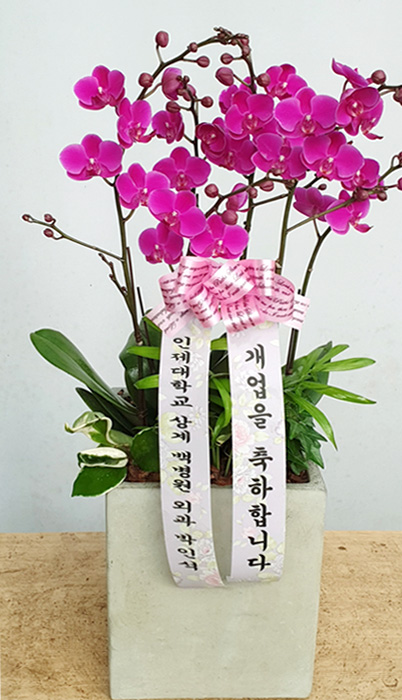 개업을 축하합니다
인제대학교 상계 백병원 외과 박인식